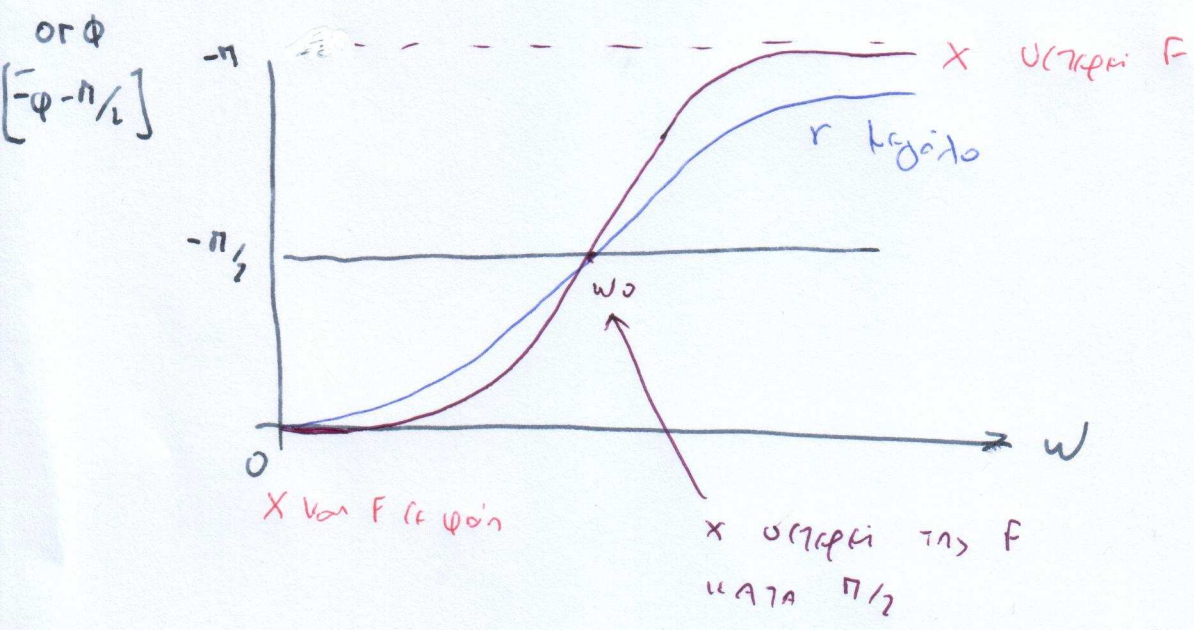 or φ
[-φ-π/2]
-π
x υστερεί F
r μεγάλο
-π/2
ω0
0
ω
x και F σε φάση
x υστερεί της F
κατα π/2